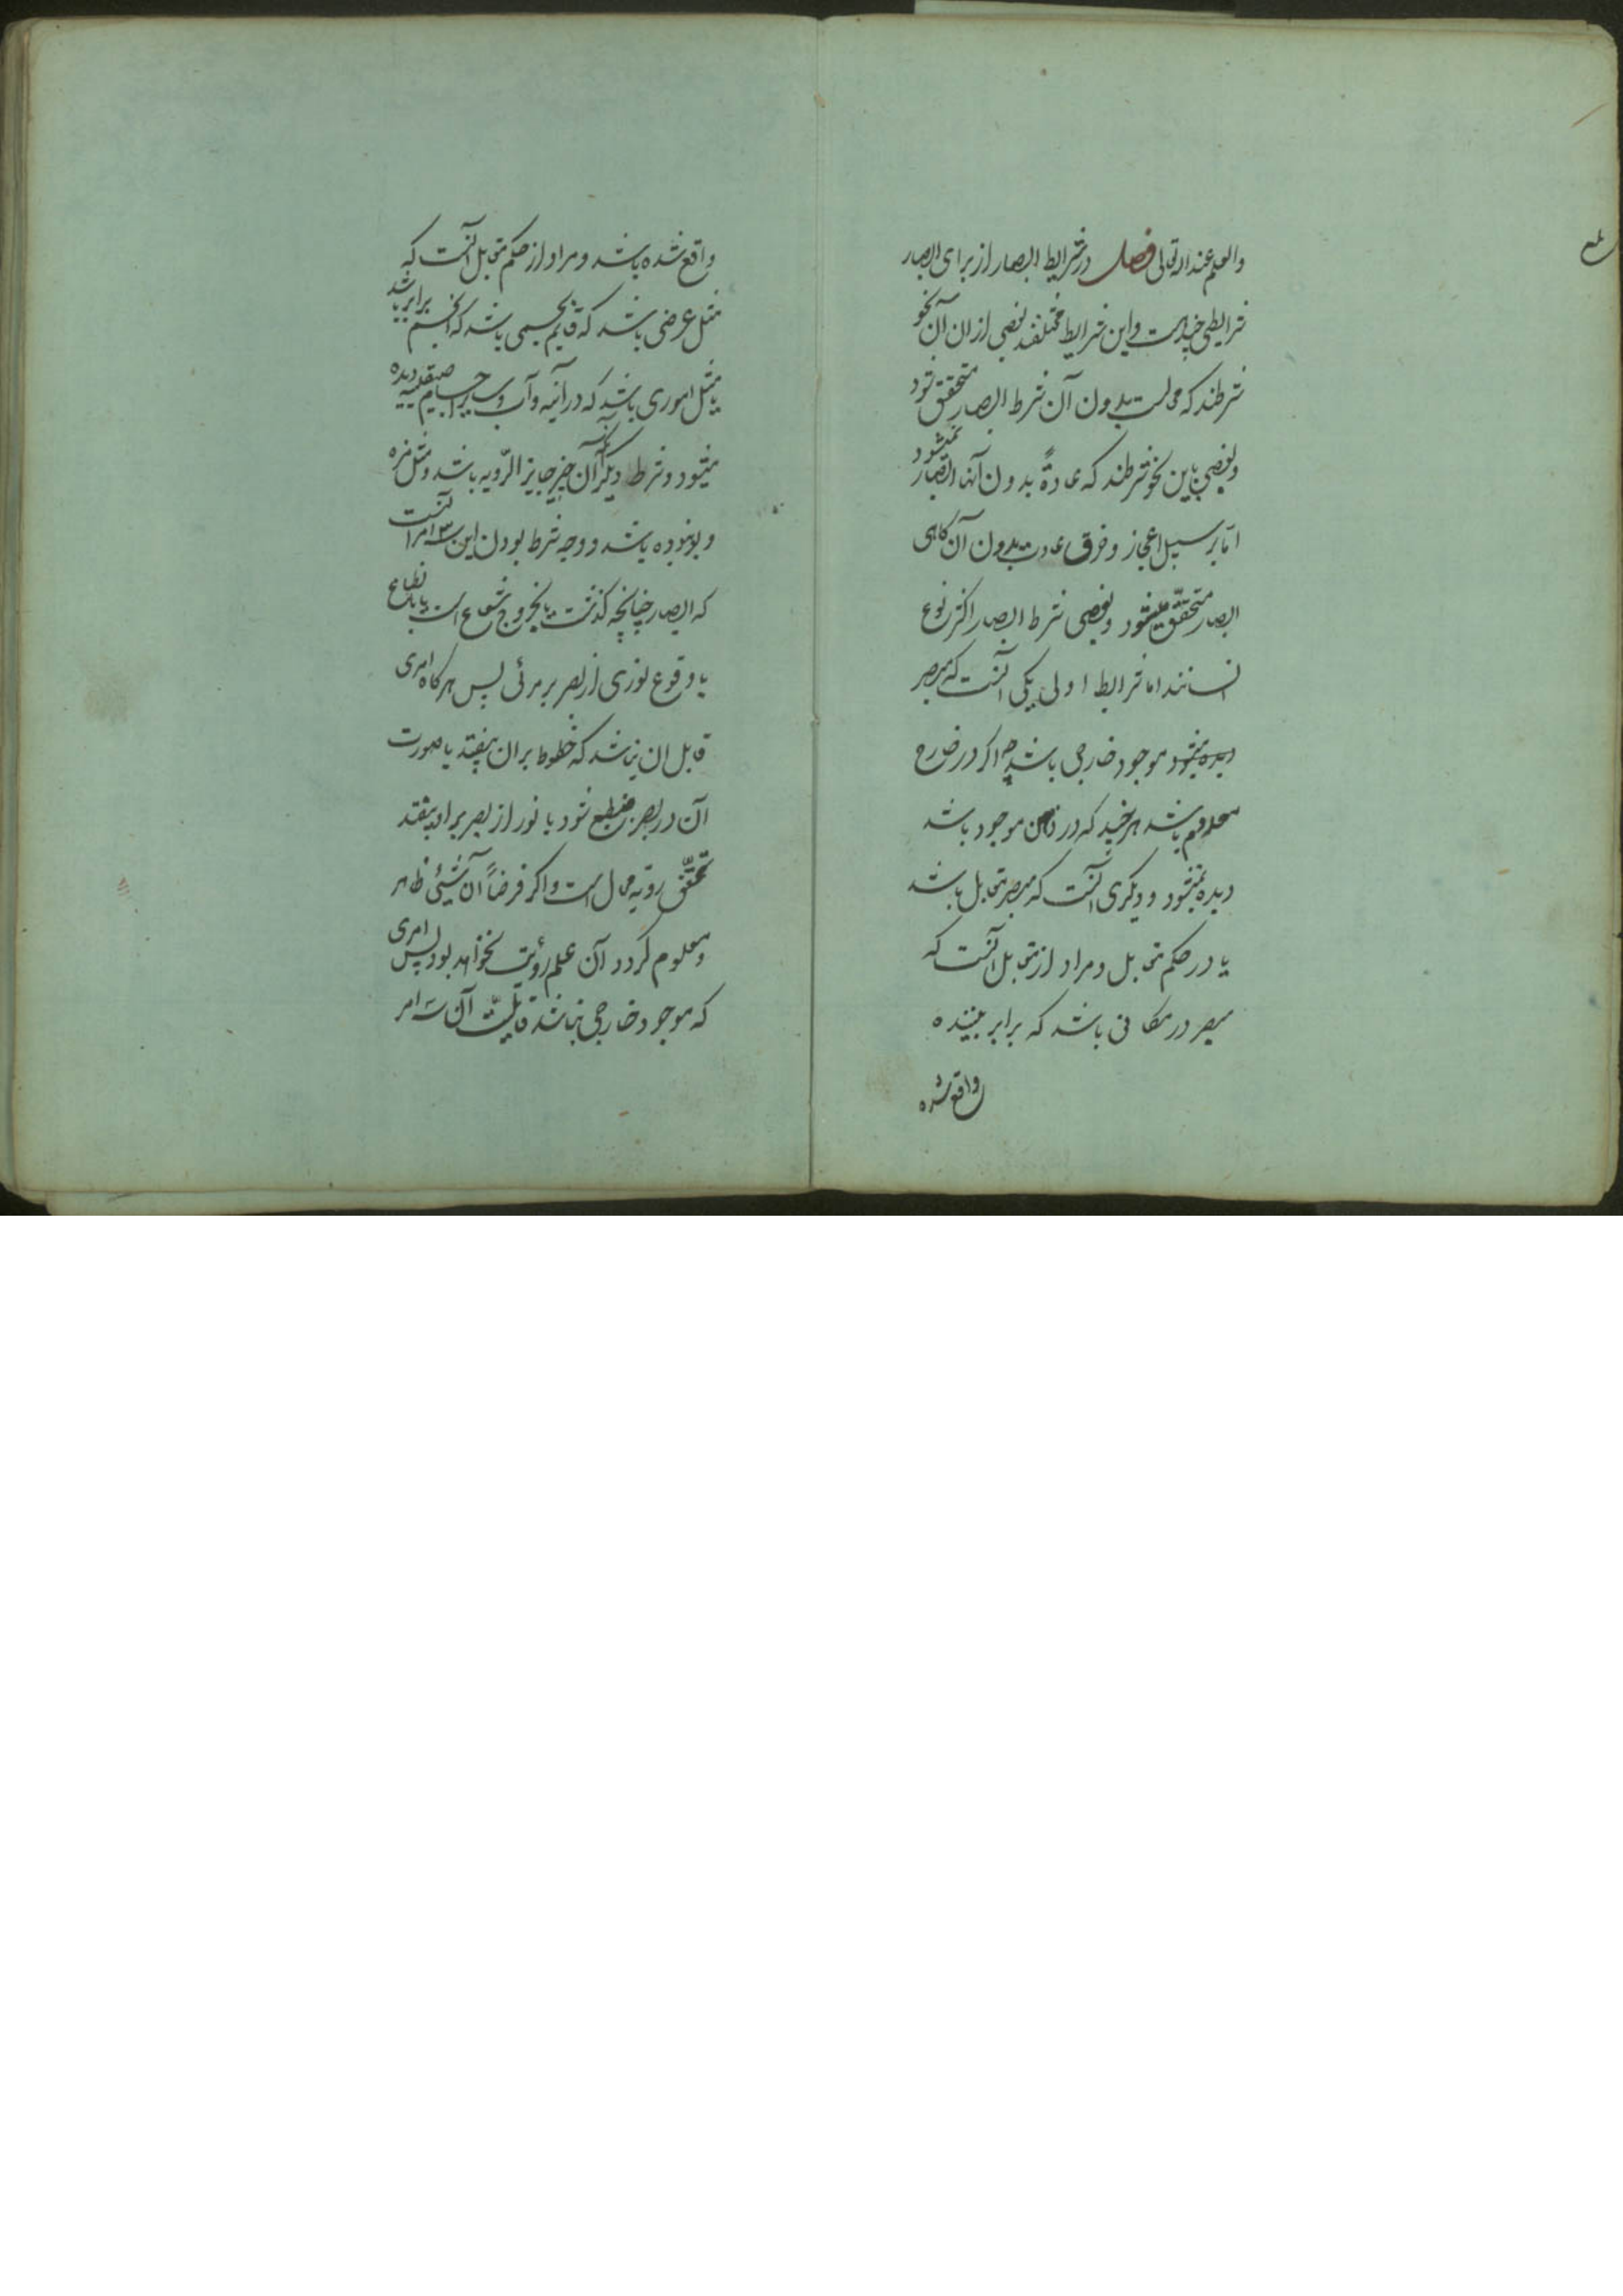 والعلم عند الله تعالی فصل در شرایط ابصار از برای ابصار
شرایطی چند است و این شرایط مختلفند بعضی از ان آن نحو
شرطند که محالست بدون آن شرط ابصار متحقق شود
و بعضی باین نحو شرطند که عادةً بدون آنها ابصار نمیشود
امّا بر سبیل اعجاز و خرق عادت بدون آن کاهی
ابصار متحقّق میشود و بعضی شرط ابصار اکثر نوع
انسانند اما شرایط اولی یکی آنست که مبصر
دیده میشود موجود خارجی باشد چه اکر در خارج
معدوم باشد هر چند که در ذهن موجود باشد
دیده نمیشود و دیکری آنست که مبصر مقابل باشد
یا در حکم مقابل و مراد از مقابل آنست که
مبصر در مکانی باشد که برابر بیننده
واقع شده
واقع شده باشد و مراد از حکم مقابل آنست که
مثل عرضی باشد که قایم بجسمی باشد که آنجسم برابر باشد
یا مثل اموری باشد که در آئینه و آب و سایر اجسام صیقلیه دیده
میشود و شرط دیکر آنکه آن چیز جایز الرّویه باشد و مثل مزه
و بو نبوده باشد و وجه شرط بودن این سه امر آنست
که ابصار چنانچه کذشت یا بخروج شعاع است یا بانطباع
یا وقوع نوری از بصر بر مرئی پس هرکاه امری
قابل ان نباشد که خطوط بران بیفتد یا صورت
آن در بصر منطبع شود یا نور از بصر بر او بیفتد
تحقّق رویه محال است و اکر فرضاً آن شیئی ظاهر
و معلوم کردد آن علم رؤیت نخواهد بود پس امری
که موجود خارجی نباشد قابلیّت آن سه امر